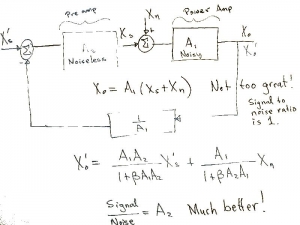 Pre amp
Xn
Power Amp
X's
Σ
Noiseless
Xs
Σ
A1
Noisy
Xo
X'o
Xo = A1 (Xs + Xn) Not too great!
Signal to
noise ratio
is 1.
1/A1
X'o = A1A2/(1+βA1A2) X's + A1/(1+βA2A1) Xn
Signal/Noise = A2 Much better!